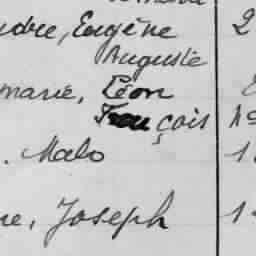 Eugène 2
Auguste
marie, Léon
François
. Malo 1
re, Joseph 1